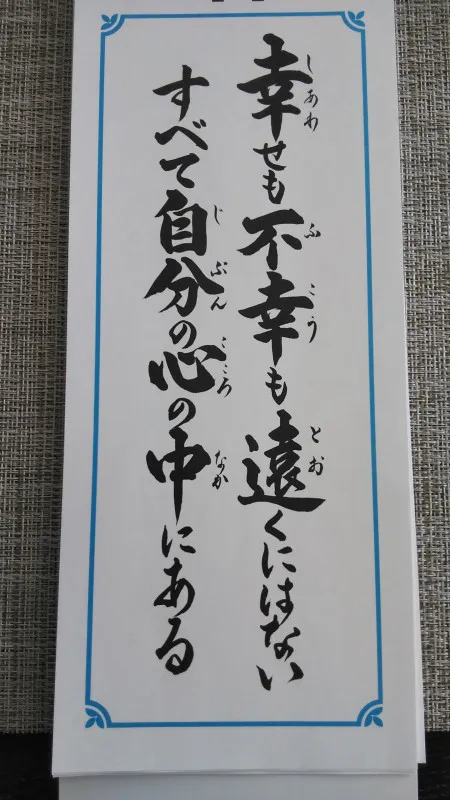 幸せも不幸も遠くにはない
しあわ
ふこう
とお
すべて自分の心の中にある
じぶん
こころ
なか